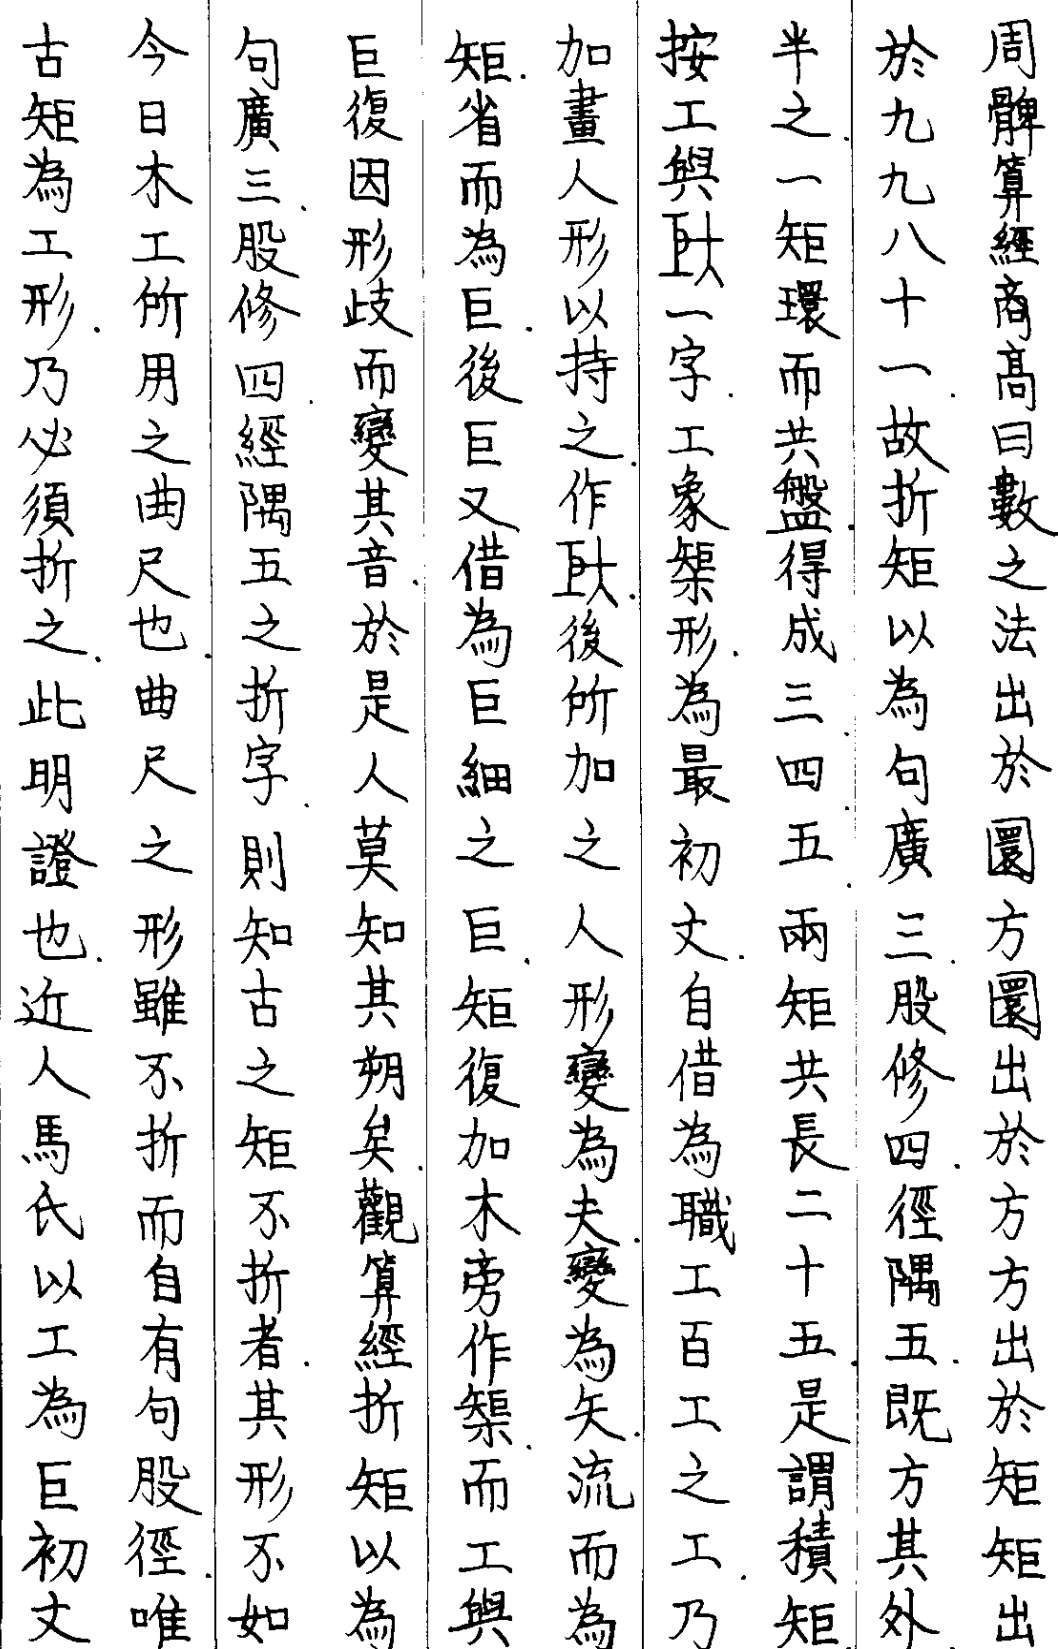 周髀算經商高曰數之法出於圜方圜出於方方出於矩矩出
於九九八十一故折矩以為句廣三股修四.徑隅五.既方其外
半之.一矩環而共盤.得成三四五.兩矩共長二十五.是謂積矩
按工與一字.工象榘形.為最初文.自借為職工百工之工.乃
加畫人形以持之.作後所加之人形變為夫.變為矢.流而為
矩.省而為巨.後巨又借為巨細之巨.矩復加木旁作榘.而工與
巨復因形歧而變其音.於是人莫知其朔矣.觀算經折矩以為
句廣三.股修四.經隅五之折字.則知古之矩不折者.其形不如
今日木工所用之曲尺也.曲尺之形雖不折而自有句股徑.唯
古矩為工形.乃必須折之.此明證也.近人馬氏以工為巨初文